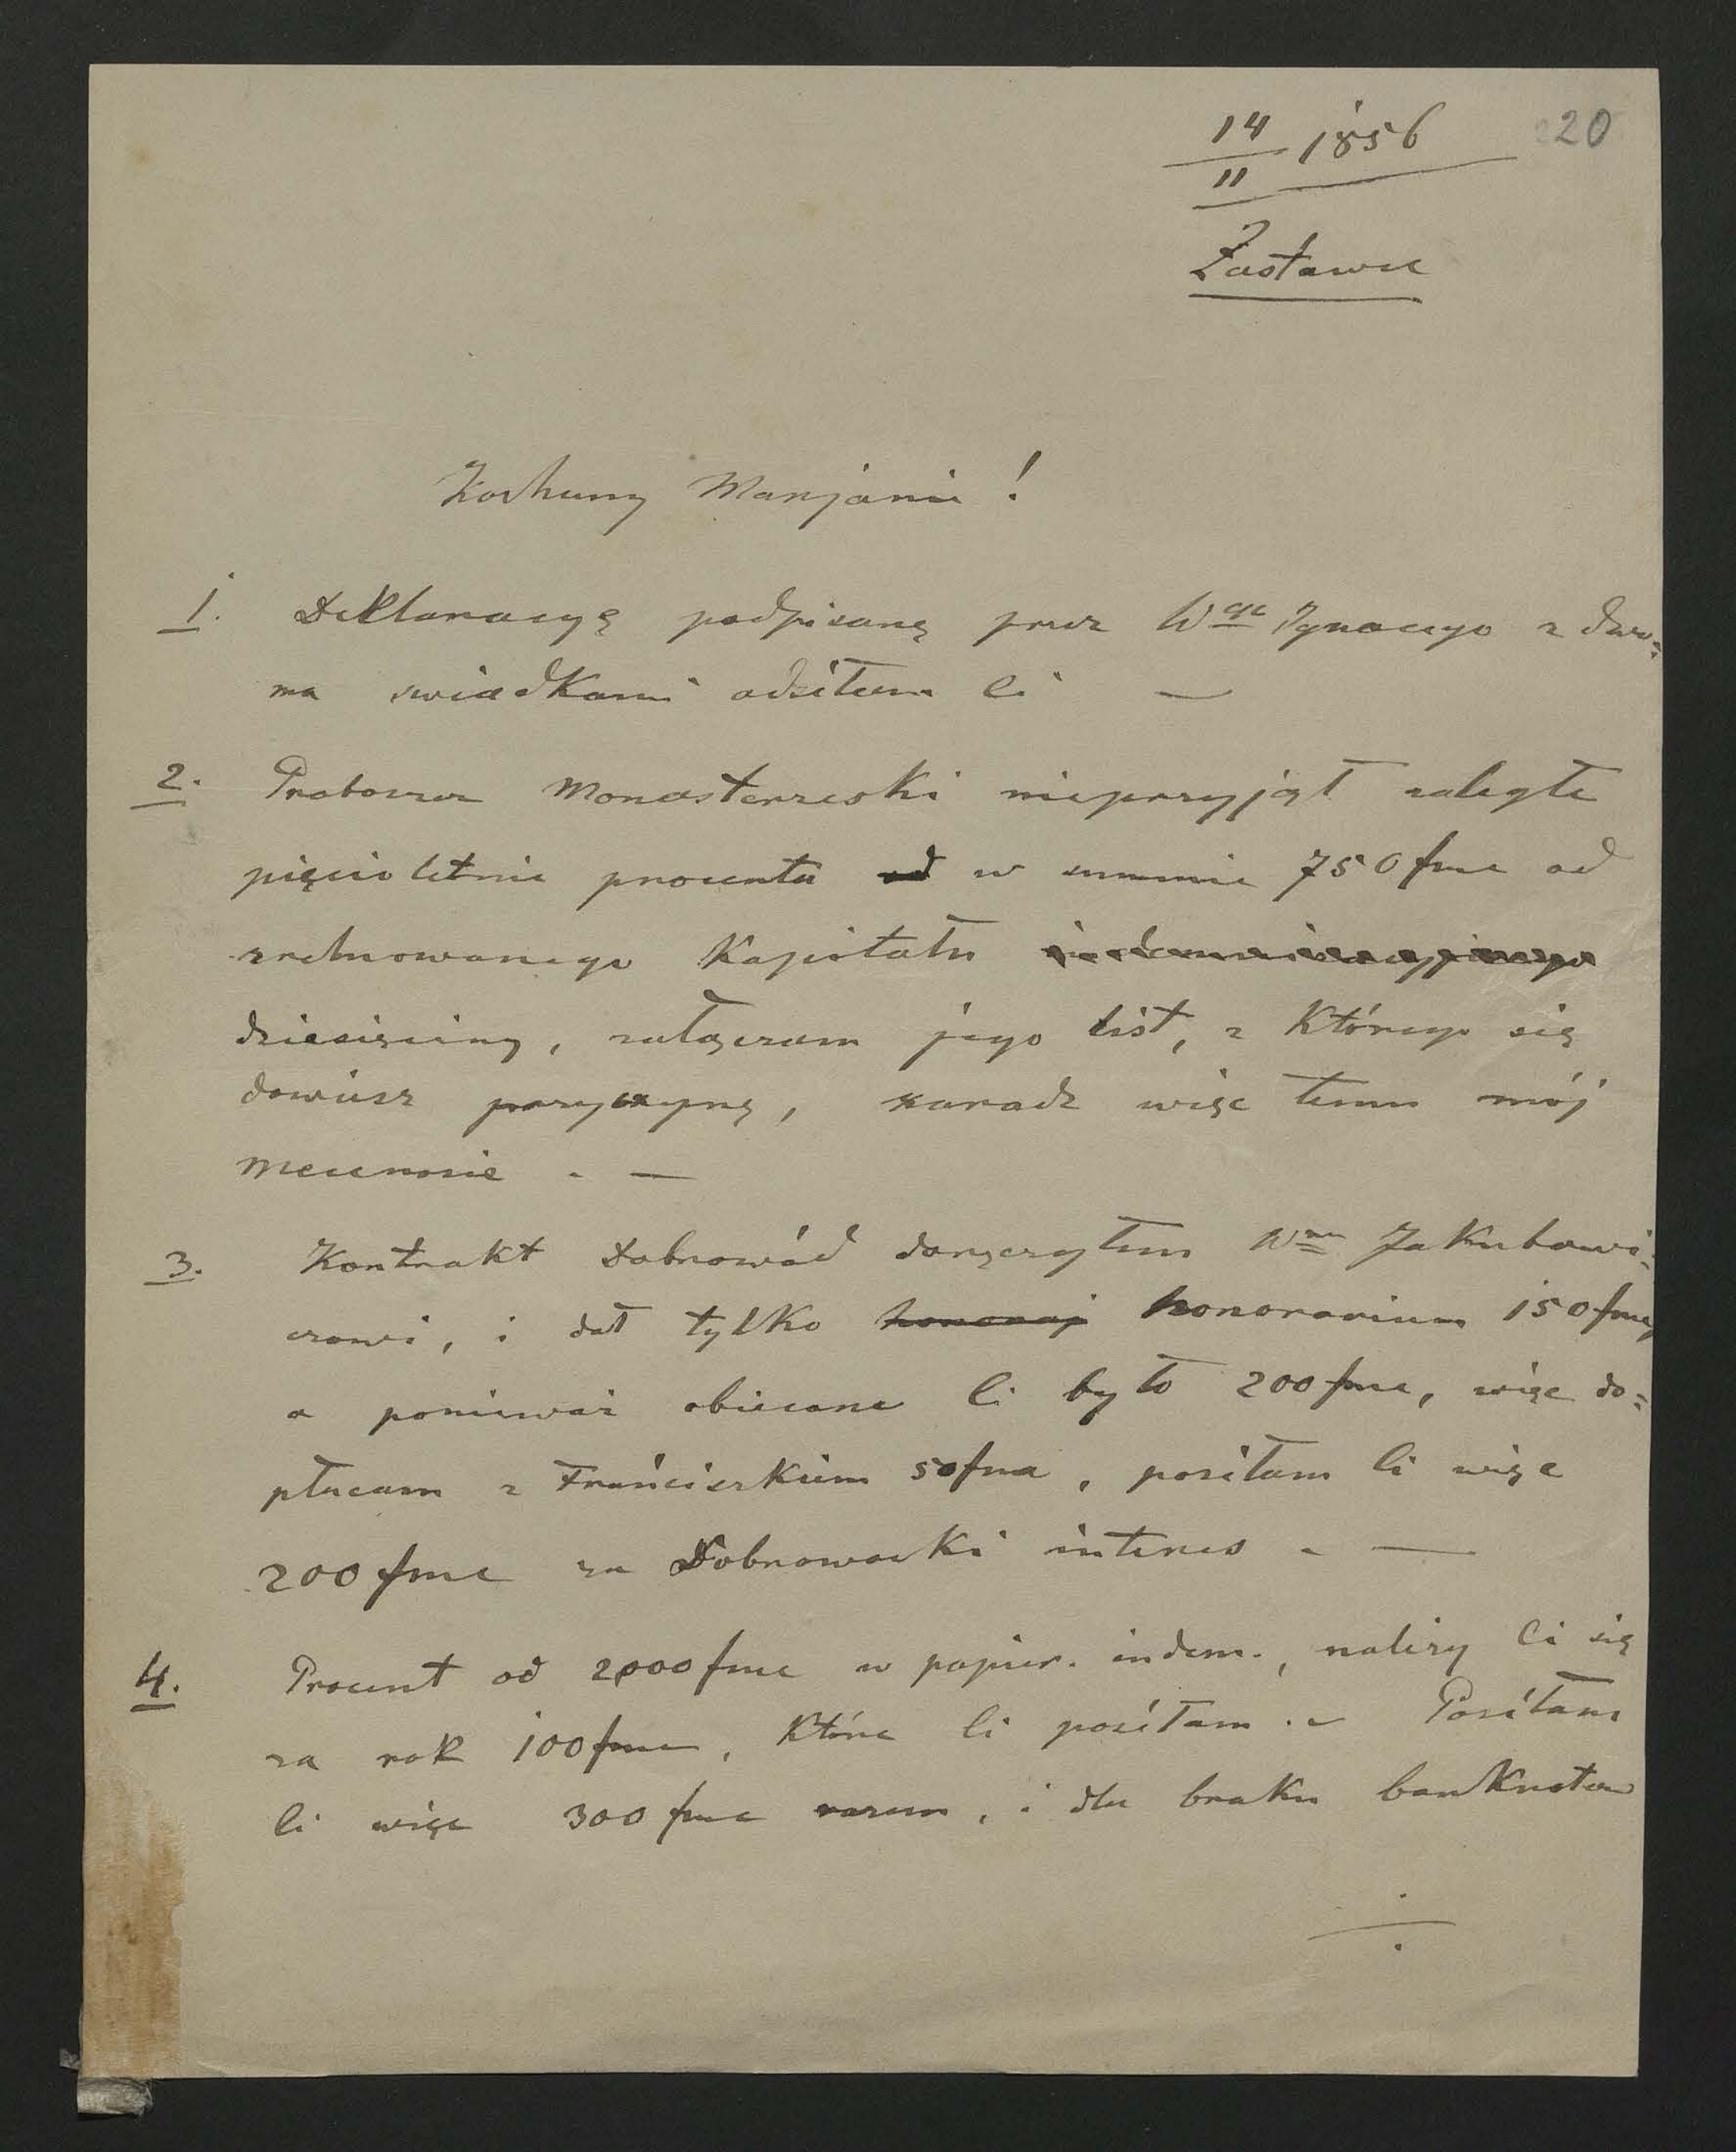 14/II 1856 20
Zastawce
Kochany Marjanie!
1. Deklaracyę podpisaną przez Wgo Ignacego z dwo=
ma swiadkami odsiłam Ci —
2. Proboszcz Monasterzeski nieprzyjął zaległe
pięcioletnie procenta od w summie 750 fmc od
zredukowanego Kapitału
dziesięciny, załączam jego list, z Którego się
dowiesz przyczynę, zaradz więc temu mój
Mecenasie . —
3. Kontrakt Dobrowód doręczyłem Wmu Jakubowi=
czowi, i dał tylko honoraj honorarium 150 fmc,
a poniewaz obiecane Ci było 200 fmc, więc do=
płacam z Franciszkiem 50 fmc, posiłam Ci więc
200 fmc za Dobrowocki interes . —
4. Procent od 2000 fmc w papier. indem., należy Ci się
za rok 100 fmc, Które Ci posiłam . — Posiłam
Ci więc 300 fmc razem, i dla braku banknotów
./.